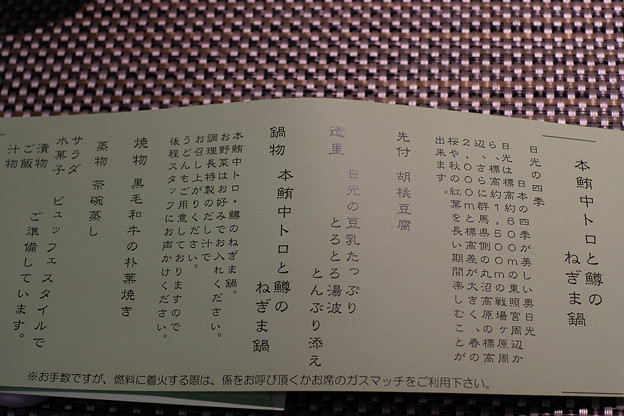 本鮪中トロと鱒の
ねぎま鍋
日光の四季
日本の四季が美しい奥日光
日光は標高約650mの東照宮周辺か
ら、標高約1500mの戦場ヶ原周
辺、さらに群馬県側の丸沼高原の標高
2000mと標高差が大きく、春の
桜や、秋の紅葉を長い期間楽しむことが
出来ます。
先付 胡桃豆腐
造里 日光の豆乳たっぷり
とろとろ湯波
とんぶり添え
鍋物 本鮪中トロと鱒の
ねぎま鍋
本鮪中トロ・鱒のねぎま鍋。
お野菜はお好みでお入れください。
調理長特製のだし汁で
お召し上がりください。
うどんもご用意しておりますので
後程スタッフにお声かけください。
焼物 黒毛和牛の朴葉焼き
蒸物 茶碗蒸し
サラダ
水菓子 ビュッフェスタイルで
漬物 ご準備しています。
ご飯
汁物
※お手数ですが、燃料に着火する際は、係をお呼び頂くかお席のガスマッチをご利用下さい。